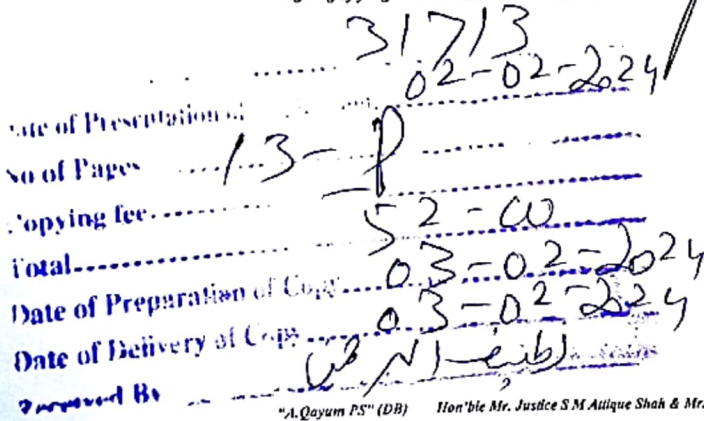 31713
Date of Presentation of 02-02-2024
No of Pages 13-P
Copying fee
Total 52-00
Date of Preparation of Copy 03-02-2024
Date of Delivery of Copy 03-02-2024
By
"A.Qayum PS" (DB) Hon'ble Mr. Justice S M Attique Shah & Mr.